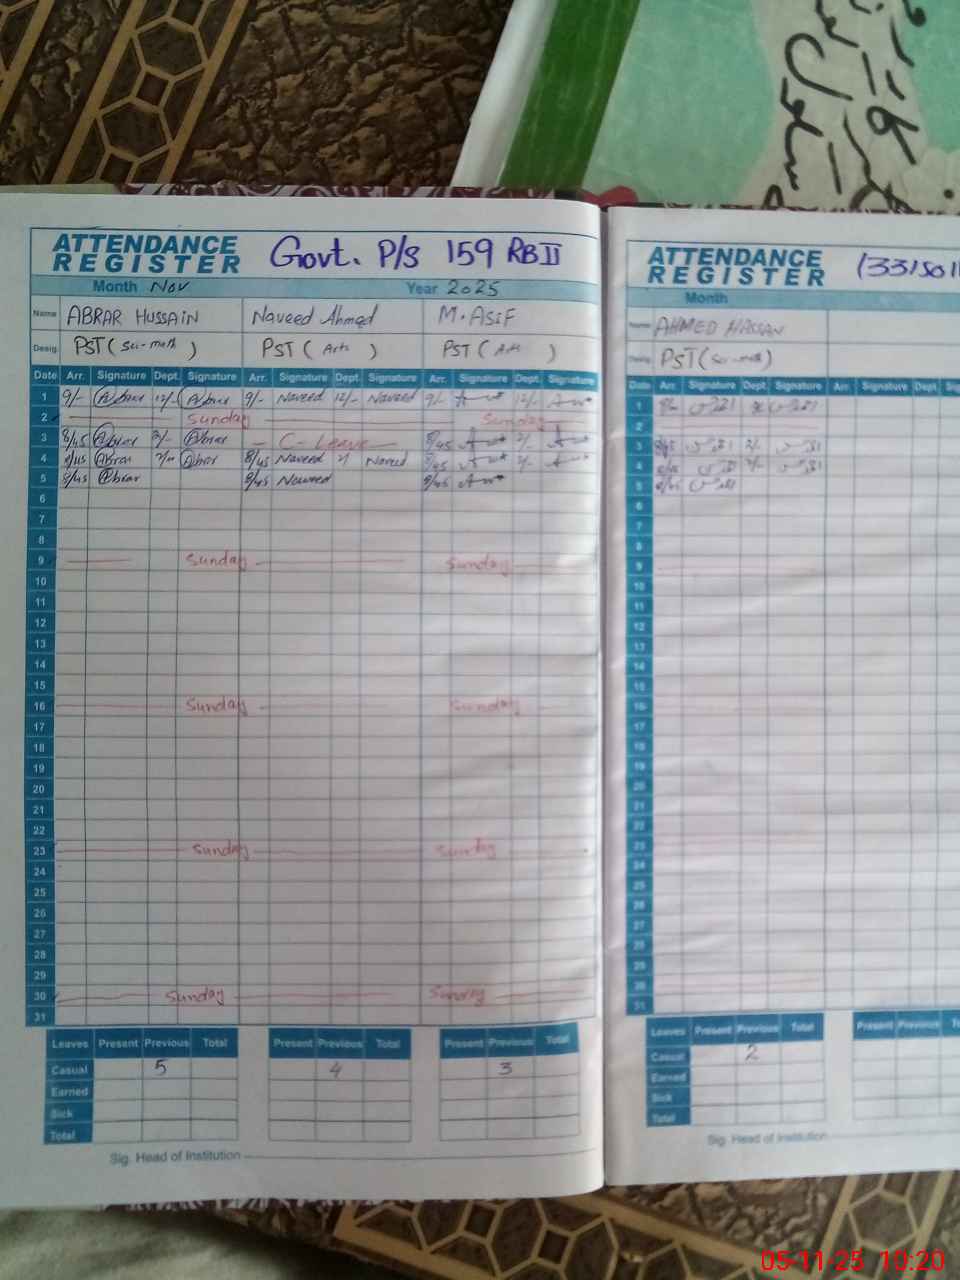 ATTENDANCE REGISTER Govt. P/S 159 RB II
Month Nov Year 2025
Name ABRAR HUSSAIN Naveed Ahmed M. ASIF
Desig. PST (Sci-math) PST (Arts) PST (Arts)
Date Arr. Signature Dept. Signature Arr. Signature Dept. Signature Arr. Signature Dept. Signature
1 9/- Abrar 12/- Abrar 9/- Naveed 12/- Naveed 9/- 12/-
2 Sunday Sunday
3 8/45 Abrar 2/- Abrar C-Leave 8/45 2/-
4 8/45 Abrar 2/- Abrar 8/45 Naveed 2/ Naveed 8/45 2/-
5 8/45 Abrar 8/45 Naveed 8/45
6
7
8
9 Sunday Sunday
10
11
12
13
14
15
16 Sunday Sunday
17
18
19
20
21
22
23 Sunday Sunday
24
25
26
27
28
29
30 Sunday Sunday
31
Leaves Present Previous Total Present Previous Total Present Previous Total
Casual 5 4 3
Earned
Sick
Total
Sig. Head of Institution
ATTENDANCE REGISTER
Month
Name AHMED HASSAN
Desig. PST (Sci-math)
Date Arr. Signature Dept. Signature Arr. Signature Dept.
1
2
3 8/45 2/-
4 8/45 2/-
5 8/45
6
7
8
9
10
11
12
13
14
15
16
17
18
19
20
21
22
23
24
25
26
27
28
29
30
31
Leaves Present Previous Total Present Previous
Casual 2
Earned
Sick
Total
Sig. Head of Institution
05-11-25 10:20